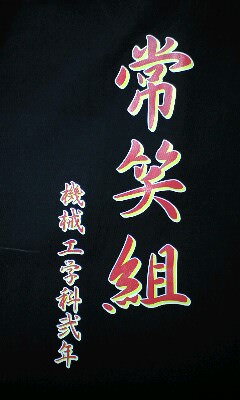 常笑組
機械工学科弐年